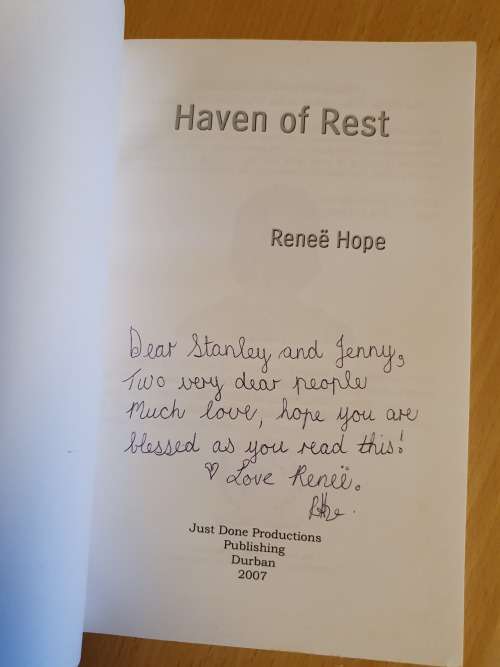 Haven of Rest
Reneë Hope
Dear Stanley and Jenny,
Two very dear people
Much love, hope you are
blessed as you read this!
♡ Love Reneë.
Just Done Productions
Publishing
Durban
2007